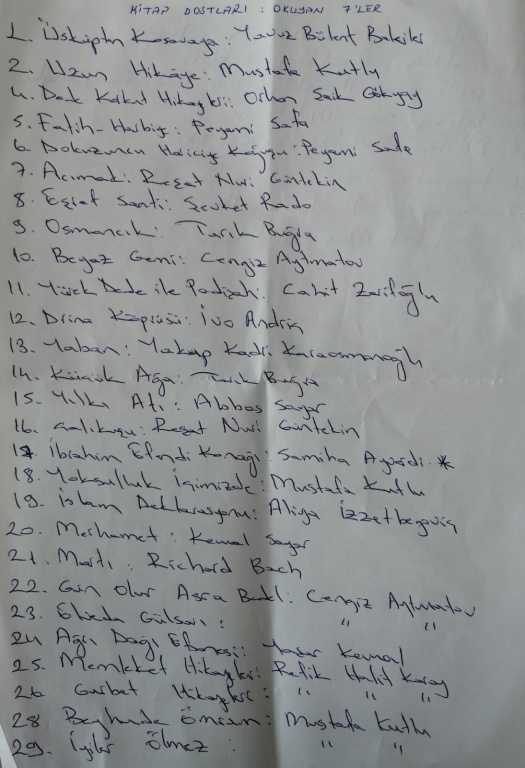 KİTAP DOSTLARI : OKUYAN 7'LER
1. Üsküpten Kosovaya : Yavuz Bülent Bakiler
2. Uzun Hikâye : Mustafa Kutlu
4. Dede Korkut Hikayeleri : Orhan Şaik Gökyay
5. Fatih-Harbiye : Peyami Safa
6. Dokuzuncu Hariciye Koğuşu : Peyami Safa
7. Acımak : Reşat Nuri Güntekin
8. Eşref Saati : Şevket Rado
9. Osmancık : Tarık Buğra
10. Beyaz Gemi : Cengiz Aytmatov
11. Yürek Dede ile Padişah : Cahit Zarifoğlu
12. Drina Köprüsü : İvo Andriç
13. Yaban : Yakup Kadri Karaosmanoğlu
14. Küçük Ağa : Tarık Buğra
15. Yılkı Atı : Abbas Sayar
16. Çalıkuşu : Reşat Nuri Güntekin
17. İbrahim Efendi Konağı : Samiha Ayverdi *
18. Yoksulluk İçimizde : Mustafa Kutlu
19. İslam Deklarasyonu : Aliya İzzetbegoviç
20. Merhamet : Kemal Sayar
21. Martı : Richard Bach
22. Gün Olur Asra Bedel : Cengiz Aytmatov
23. Elveda Gülsarı : " "
24 Ağrı Dağı Efsanesi : Yaşar Kemal
25. Memleket Hikayeleri : Refik Halit Karay
26 Gurbet Hikayeleri : " " "
28 Beyhude Ömrüm : Mustafa Kutlu
29. İyiler Ölmez : " "